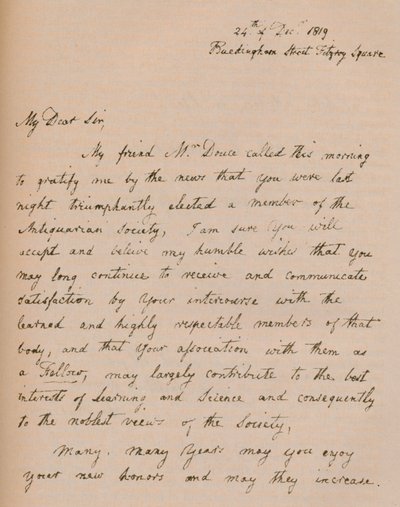 24th of Decr 1819
Buckingham Street Fitzroy Square
My Dear Sir,
My friend Mr Douce called this morning
to gratify me by the news that you were last
night triumphantly elected a member of the
Antiquarian Society, I am sure you will
accept and believe my humble wishes that you
may long continue to receive and communicate
satisfaction by your intercourse with the
learned and highly respectable members of that
body, and that your association with them as
a Fellow, may largely contribute to the best
interests of Learning and Science and consequently
to the noblest views of the Society,
Many, many years may you enjoy
your new honors and may they increase.